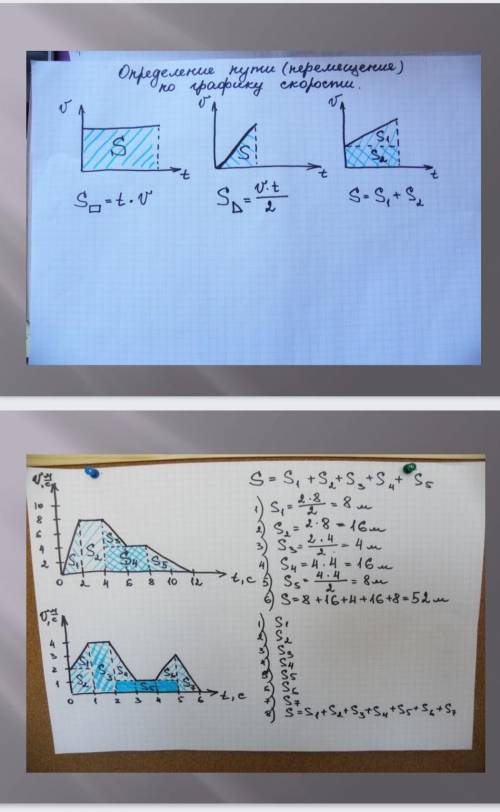 Определение пути (перемещение)
по графику скорости.
v
v
v
S
S
S₁
S₂
t
t
t
S□ = t · v
S◺ = v·t/2
S = S₁ + S₂
v, м/с
10
8
6
4
2
0 2 4 6 8 10 12 t, c
S₁ S₂ S₃ S₄ S₅
S = S₁ + S₂ + S₃ + S₄ + S₅
1) S₁ = 2·8/2 = 8 м
2) S₂ = 2·8 = 16 м
3) S₃ = 2·4/2 = 4 м
4) S₄ = 4·4 = 16 м
5) S₅ = 4·4/2 = 8 м
6) S = 8 + 16 + 4 + 16 + 8 = 52 м
v, м/с
4
3
2
1
0 1 2 3 4 5 6 t, c
1) S₁
2) S₂
3) S₃
S₄
S₅
S₆
S₇
8) S = S₁ + S₂ + S₃ + S₄ + S₅ + S₆ + S₇